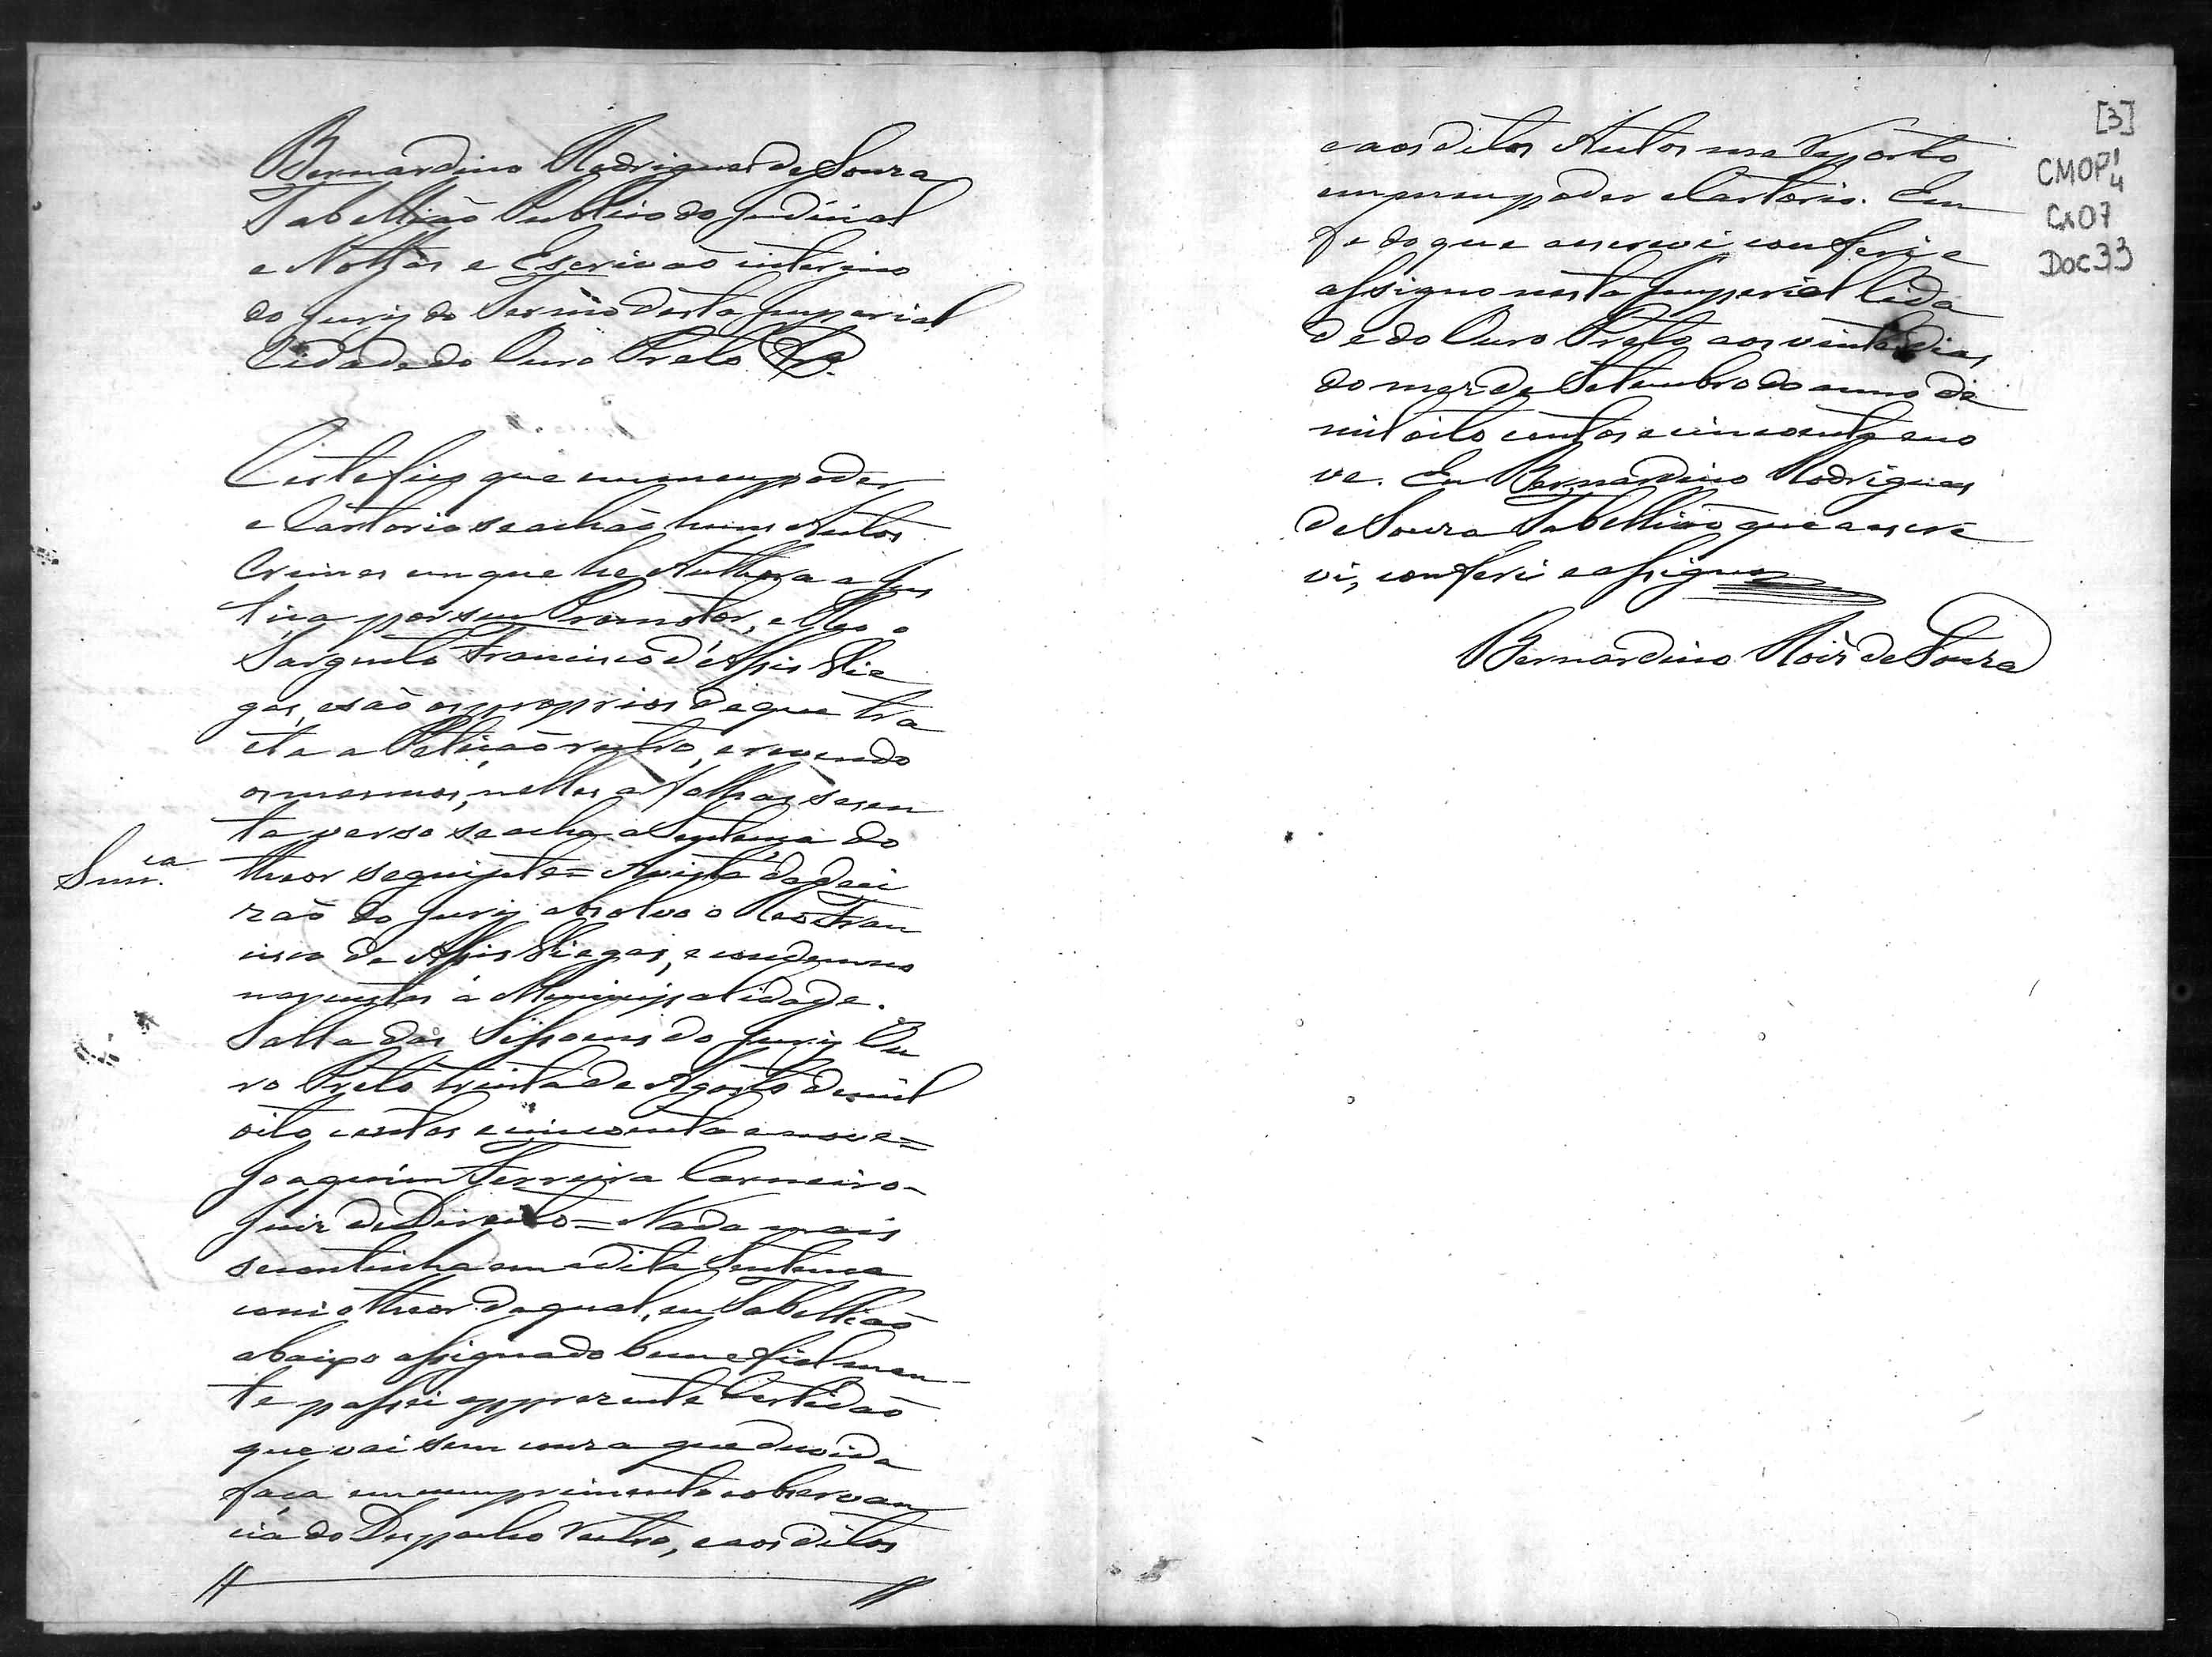 Bernardino Rodrigues de Souza
Tabellião Publico do Judicial
e Nottas e Escrivão interino
do Jury do Termo desta Imperial
Cidade do Ouro Preto
Certefico que em meu poder
e Cartorio se achão huns Autos
Crimes em que he Authora a Jus
tiça por seu Promotor, e Reo o
Sargento Francisco d'Assis Vie
gas, e são os proprios de que tra
cta a Petição retro, e revendo
os mesmos, nelles a folhas sesen
ta verso se acha a Sentença do
Snn.ca theor seguinte = Avista da deci
zão do Jury absolvo o Reo Fran
cisco de Assis Viegas, e condemno
nas custas á Municipalidade.
Salla das Sessoens do Jury Ou
ro Preto trinta de Agosto de mil
oito centos e cincoenta e nove =
Joaquim Ferreira Carneiro -
Juiz de Direito = Nada mais
se continha em a dita Sentença
com o theor da qual, eu Tabellião
abaixo assignado bem e fielmen
te passei a prezente Certidão
que vai sem couza que duvida
faça em cumprimento e observan
cia do Despacho retro, e aos ditos
[3]
CMOP'
4
Cx07
Doc33
e aos ditos Autos me reporto
em meu poder e Cartorio. Em
fe do que escrevi conferi e
assigno nesta Imperial Cida
de do Ouro Preto aos vinte dias
do mez de Setembro do anno de
mil oito centos e cincoenta e no
ve. Eu Bernardino Rodrigues
de Souza Tabellião que a escre
vi, conferi e assigno
Bernardino Roiz de Souza